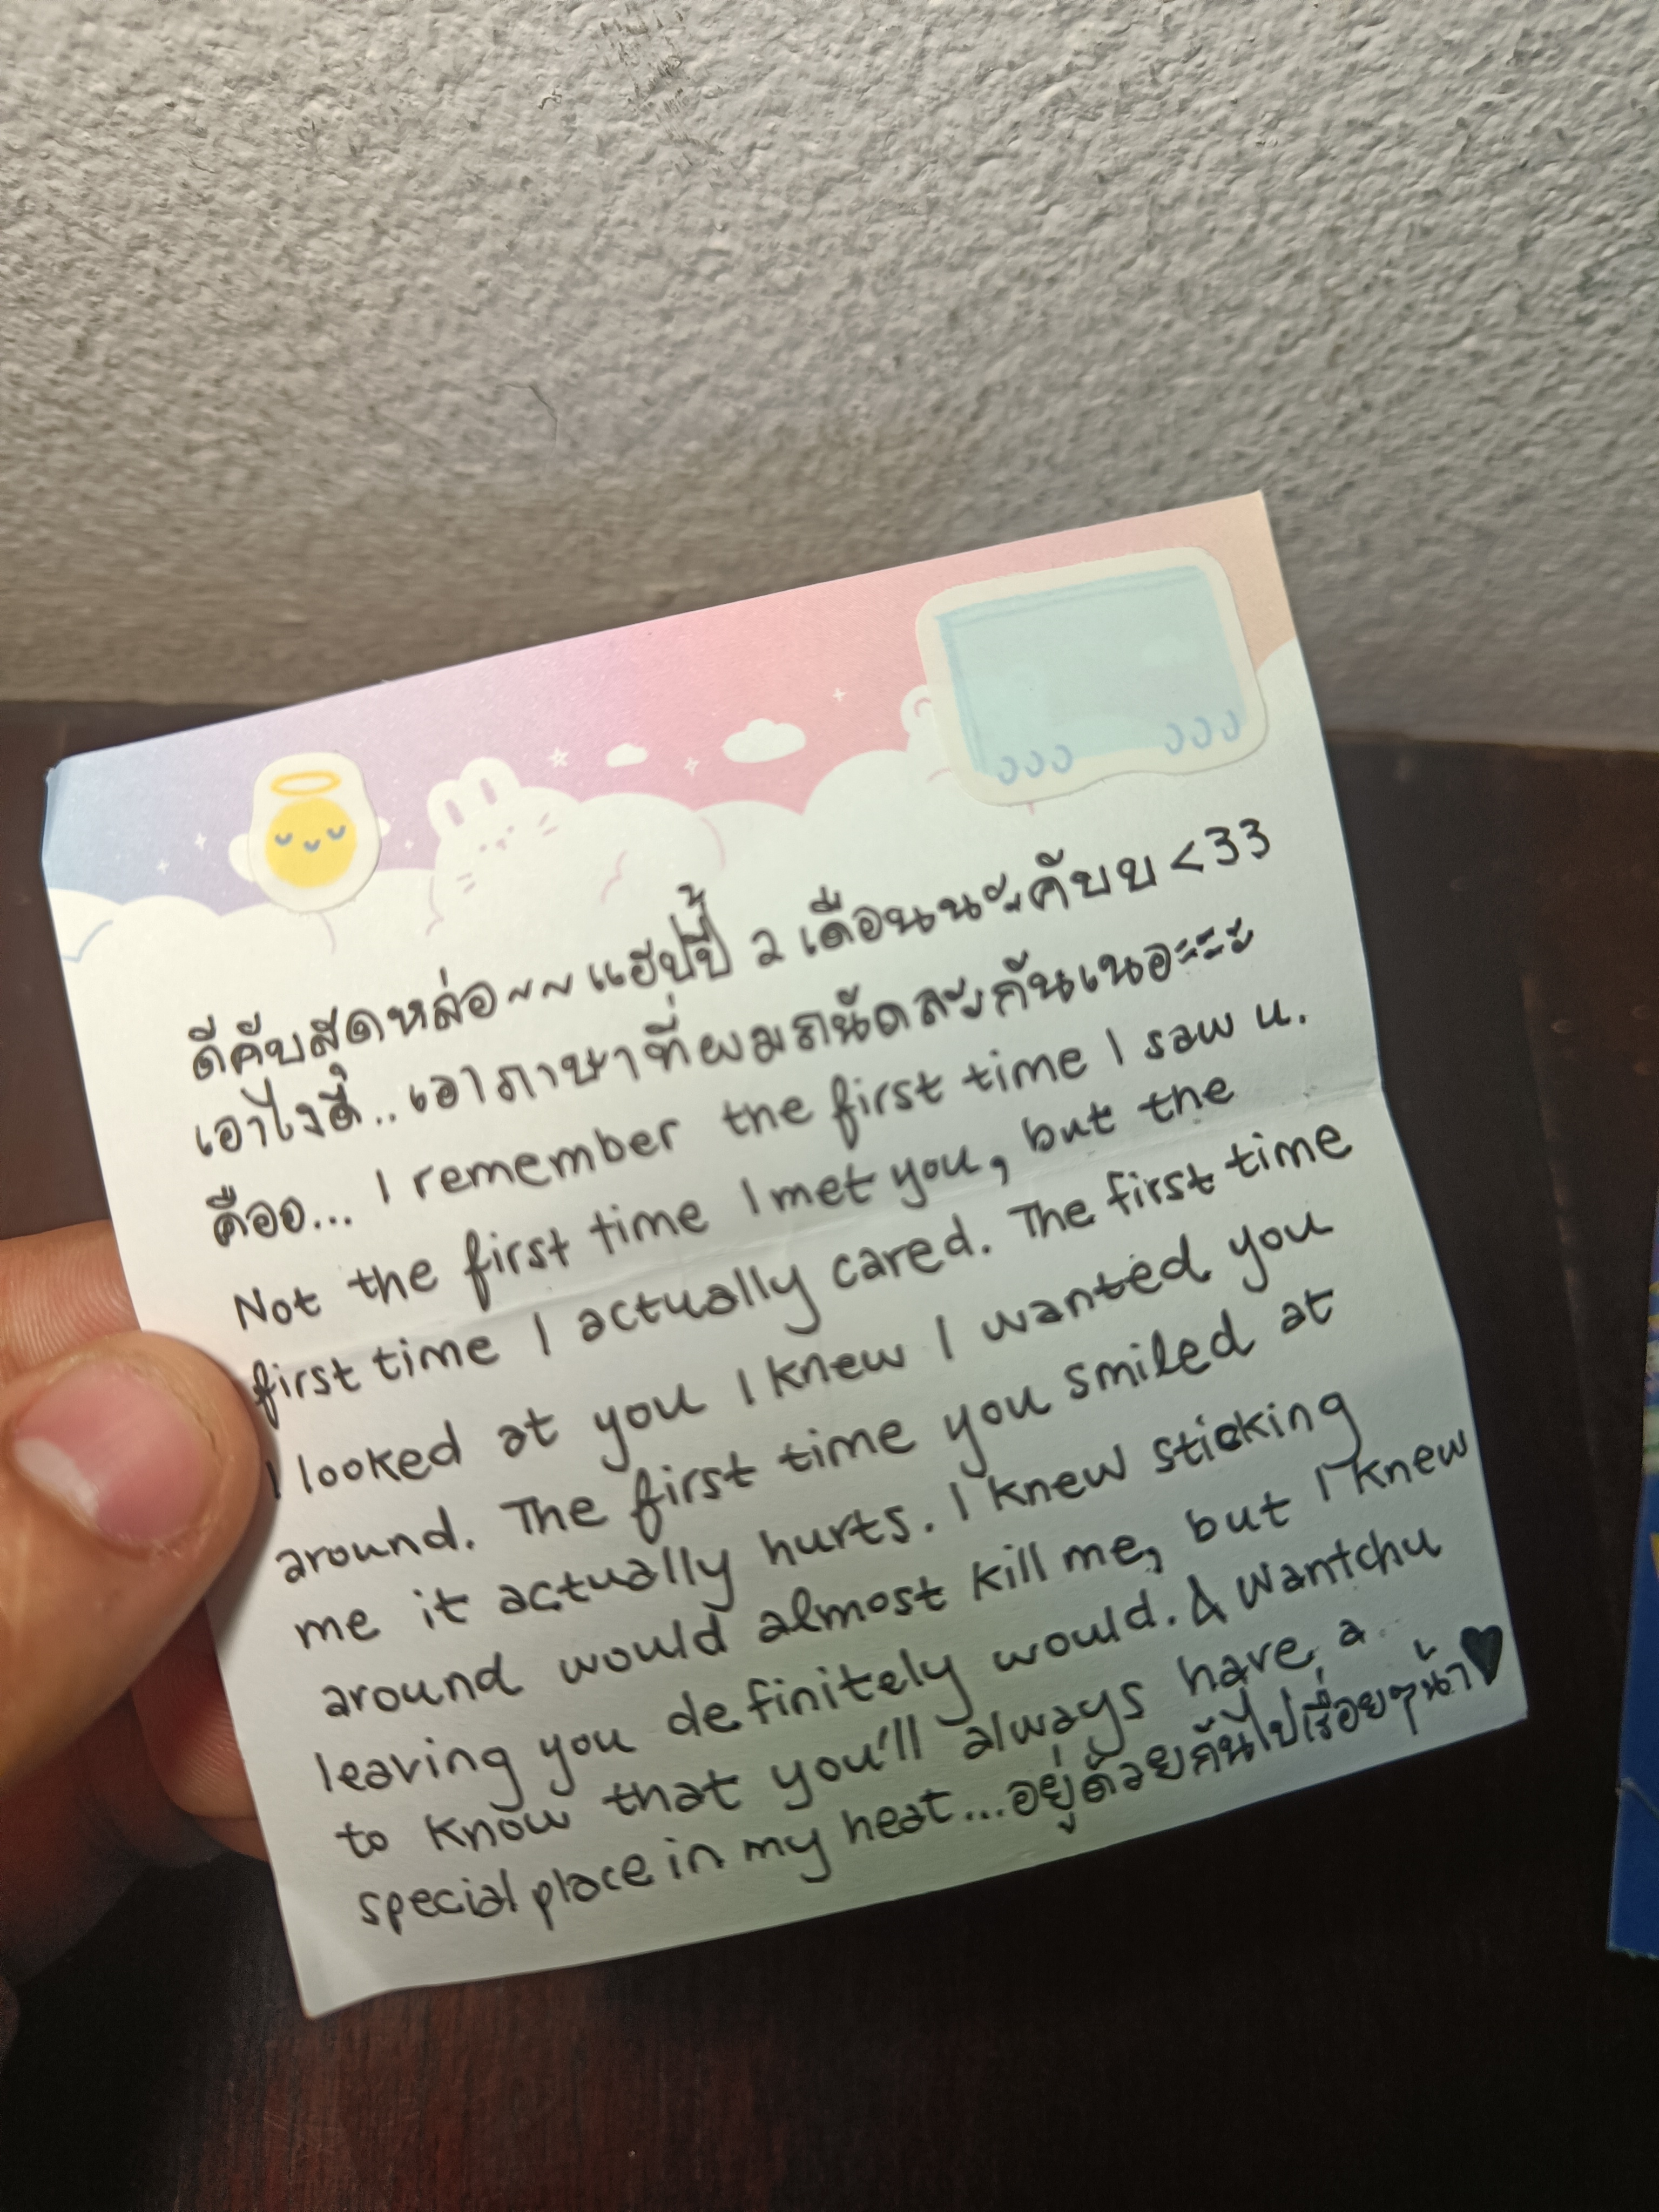 ดีคั๊บสุดหล่อ~~ แฮปปี้ 2 เดือนนะคับบ <33
เอาไงดี.. เอาภาษาที่ผมถนัดละกันเนอะะะ
คืออ... I remember the first time I saw u.
Not the first time I met you, but the
first time I actually cared. The first time
I looked at you I knew I wanted you
around. The first time you smiled at
me it actually hurts. I knew sticking
around would almost kill me, but I knew
leaving you definitely would. & Wantchu
to know that you'll always have a
special place in my heat...อยู่ด้วยกันไปเรื่อยๆน้า♥